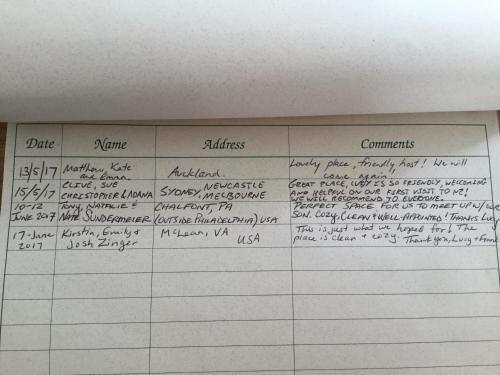 Date Name Address Comments
13/5/17 Matthew, Kate and Emma. Auckland. Lovely place, friendly host! We will come again!
15/5/17 CLIVE, SUE CHRISTOPHER & ADANA SYDNEY, NEWCASTLE, MELBOURNE GREAT PLACE, LUCY IS SO FRIENDLY, WELCOMING AND HELPFUL ON OUR FIRST VISIT TO NZ! WE WILL RECOMMEND TO EVERYONE.
10-12 JUNE 2017 TONY, NATALIE & NATE SUNDERMEIER CHALFONT, PA (OUTSIDE PHILADELPHIA) USA PERFECT SPACE FOR US TO MEET UP W/ OUR SON. COZY, CLEAN & WELL APPOINTED! THANKS LUCY
17-June 2017 Kirstin, Emily & Josh Zinger McLean, VA USA This is just what we hoped for! The place is clean + cozy. Thank you, Lucy +